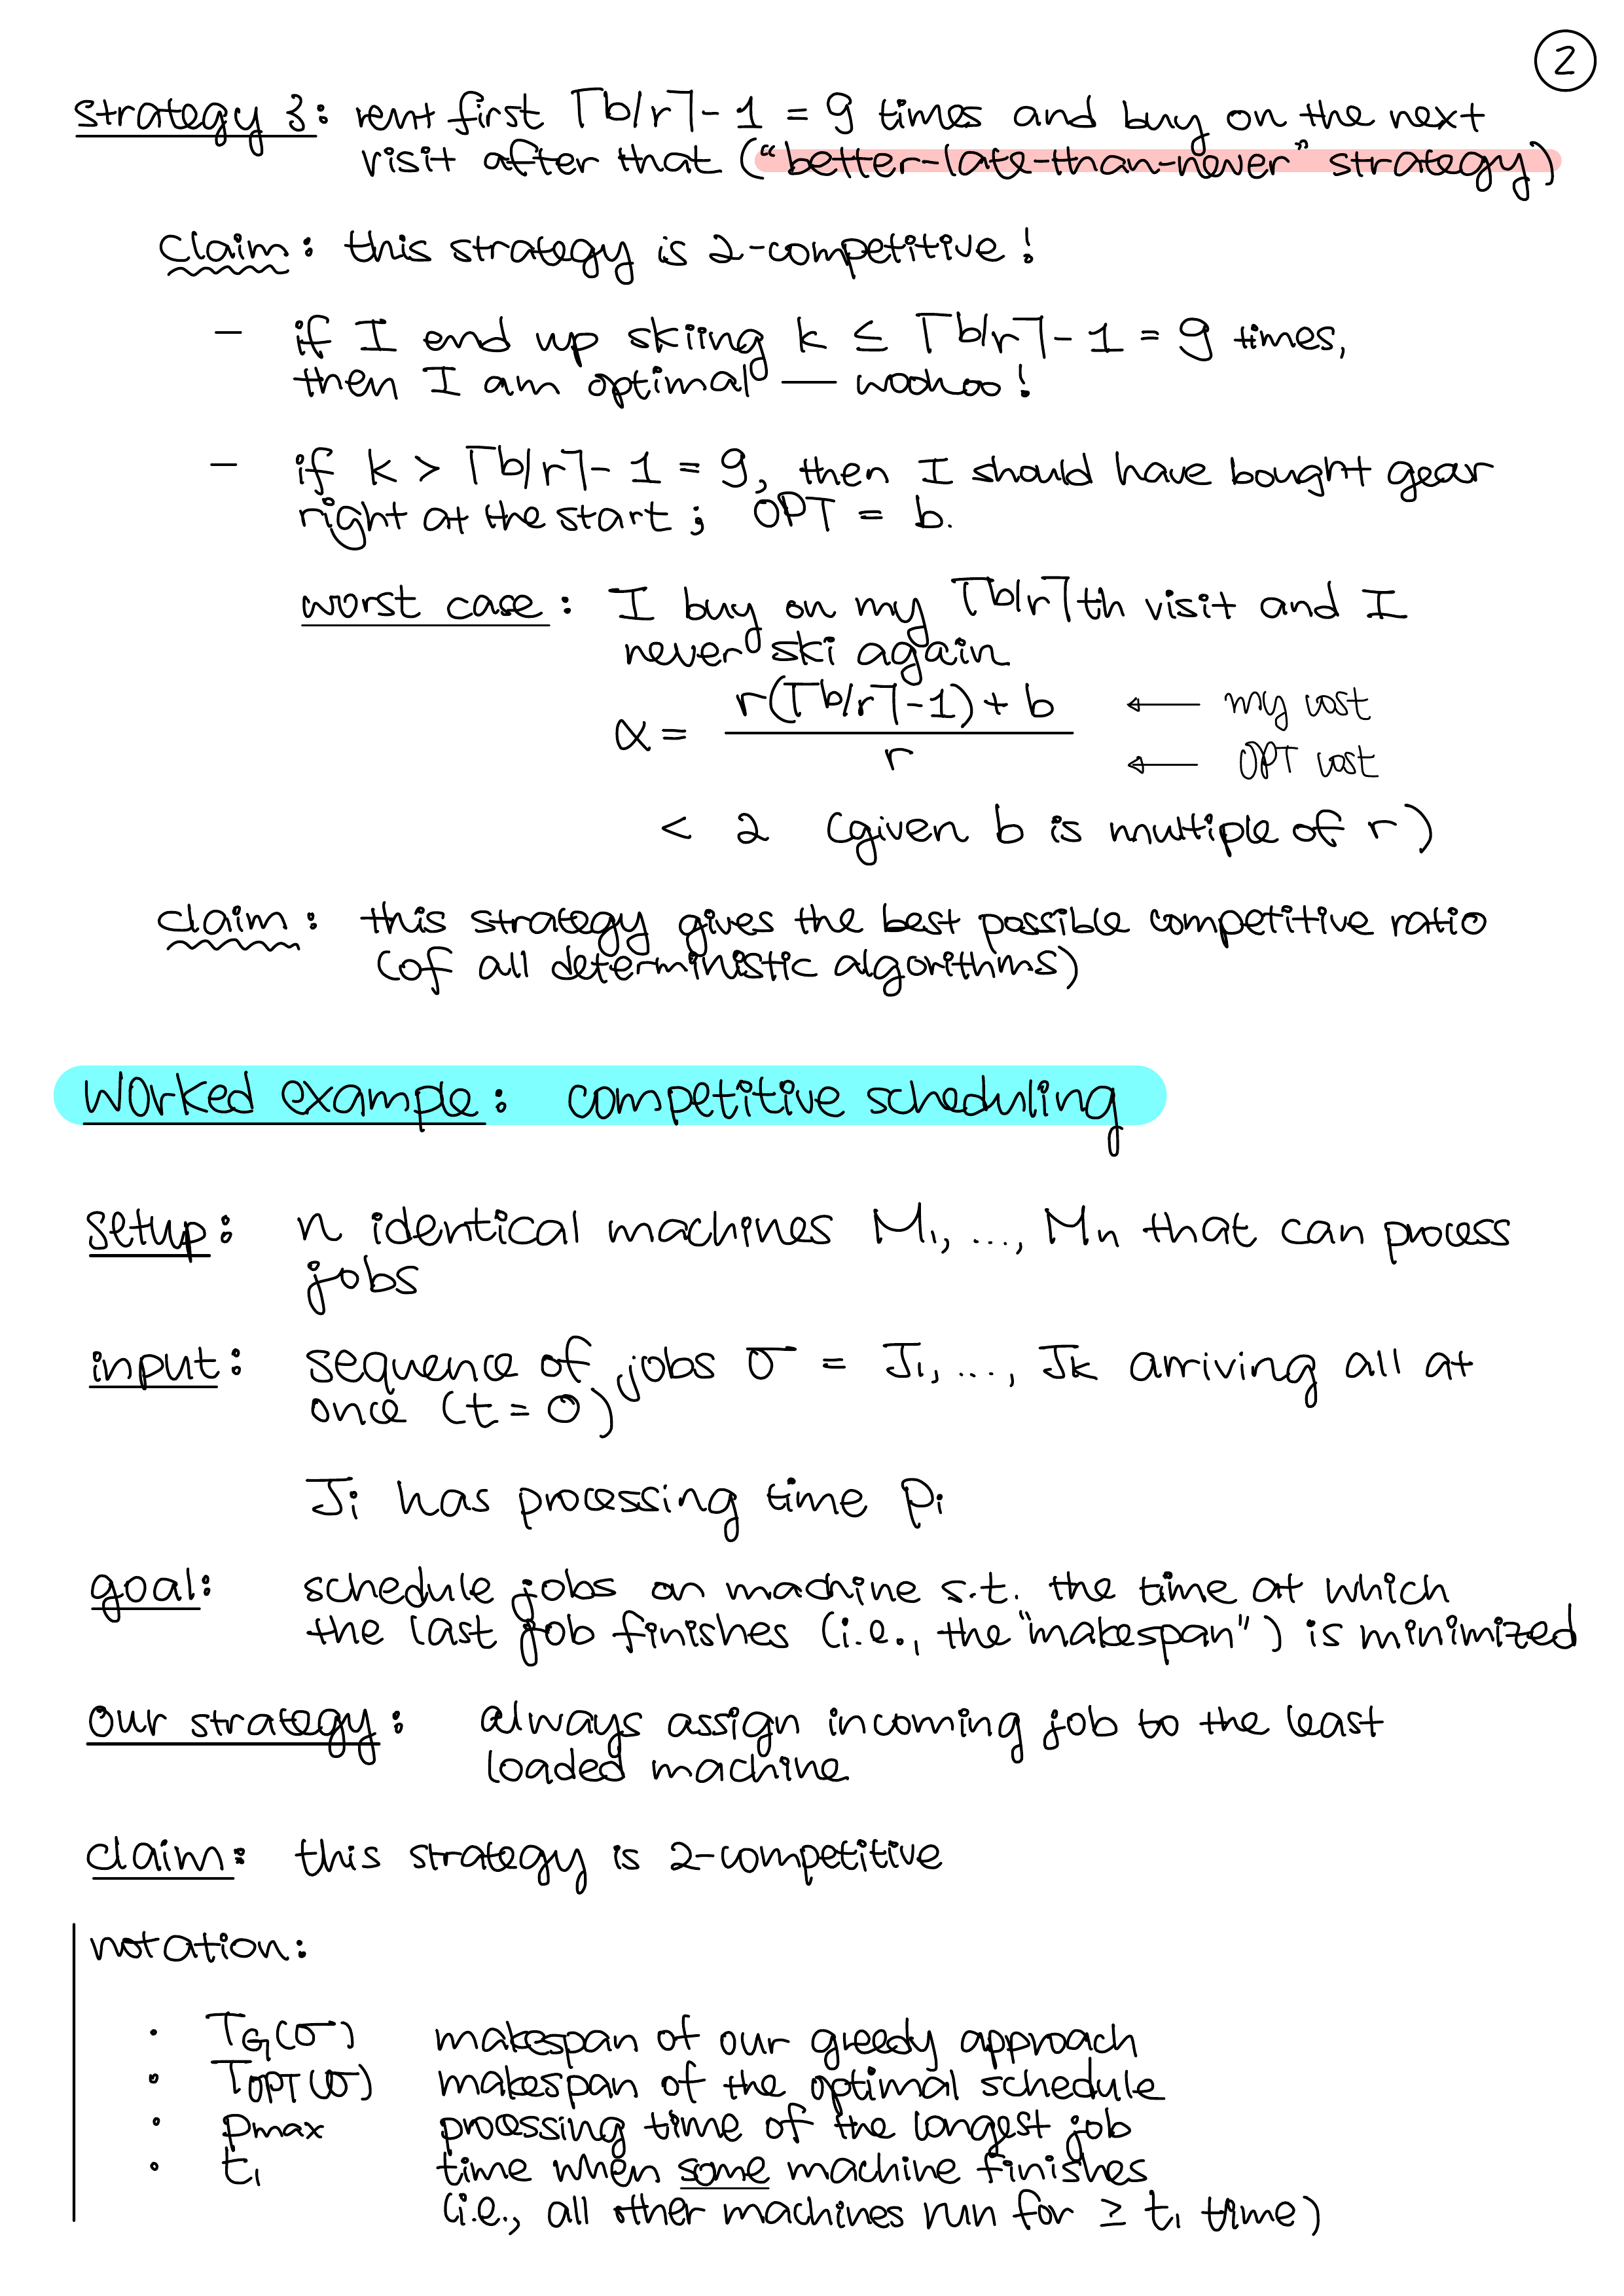 2
strategy 3: rent first ⌈b/r⌉ - 1 = 9 times and buy on the next
visit after that ("better-late-than-never" strategy)
claim: this strategy is 2-competitive!
- if I end up skiing k ≤ ⌈b/r⌉ - 1 = 9 times,
then I am optimal — woohoo!
- if k > ⌈b/r⌉ - 1 = 9, then I should have bought gear
right at the start; OPT = b.
worst case: I buy on my ⌈b/r⌉th visit and I
never ski again
α = r(⌈b/r⌉-1) + b ← my cost
r ← OPT cost
< 2 (given b is multiple of r)
claim: this strategy gives the best possible competitive ratio
(of all deterministic algorithms)
Worked example: competitive scheduling
setup: n identical machines M₁, ..., Mₙ that can process
jobs
input: sequence of jobs σ = J₁, ..., Jₖ arriving all at
once (t = 0)
Jᵢ has processing time pᵢ
goal: schedule jobs on machine s.t. the time at which
the last job finishes (i.e., the "makespan") is minimized
our strategy: always assign incoming job to the least
loaded machine
claim: this strategy is 2-competitive
notation:
• T_G(σ) makespan of our greedy approach
• T_OPT(σ) makespan of the optimal schedule
• p_max processing time of the longest job
• t₁ time when some machine finishes
(i.e., all other machines run for ≥ t₁ time)